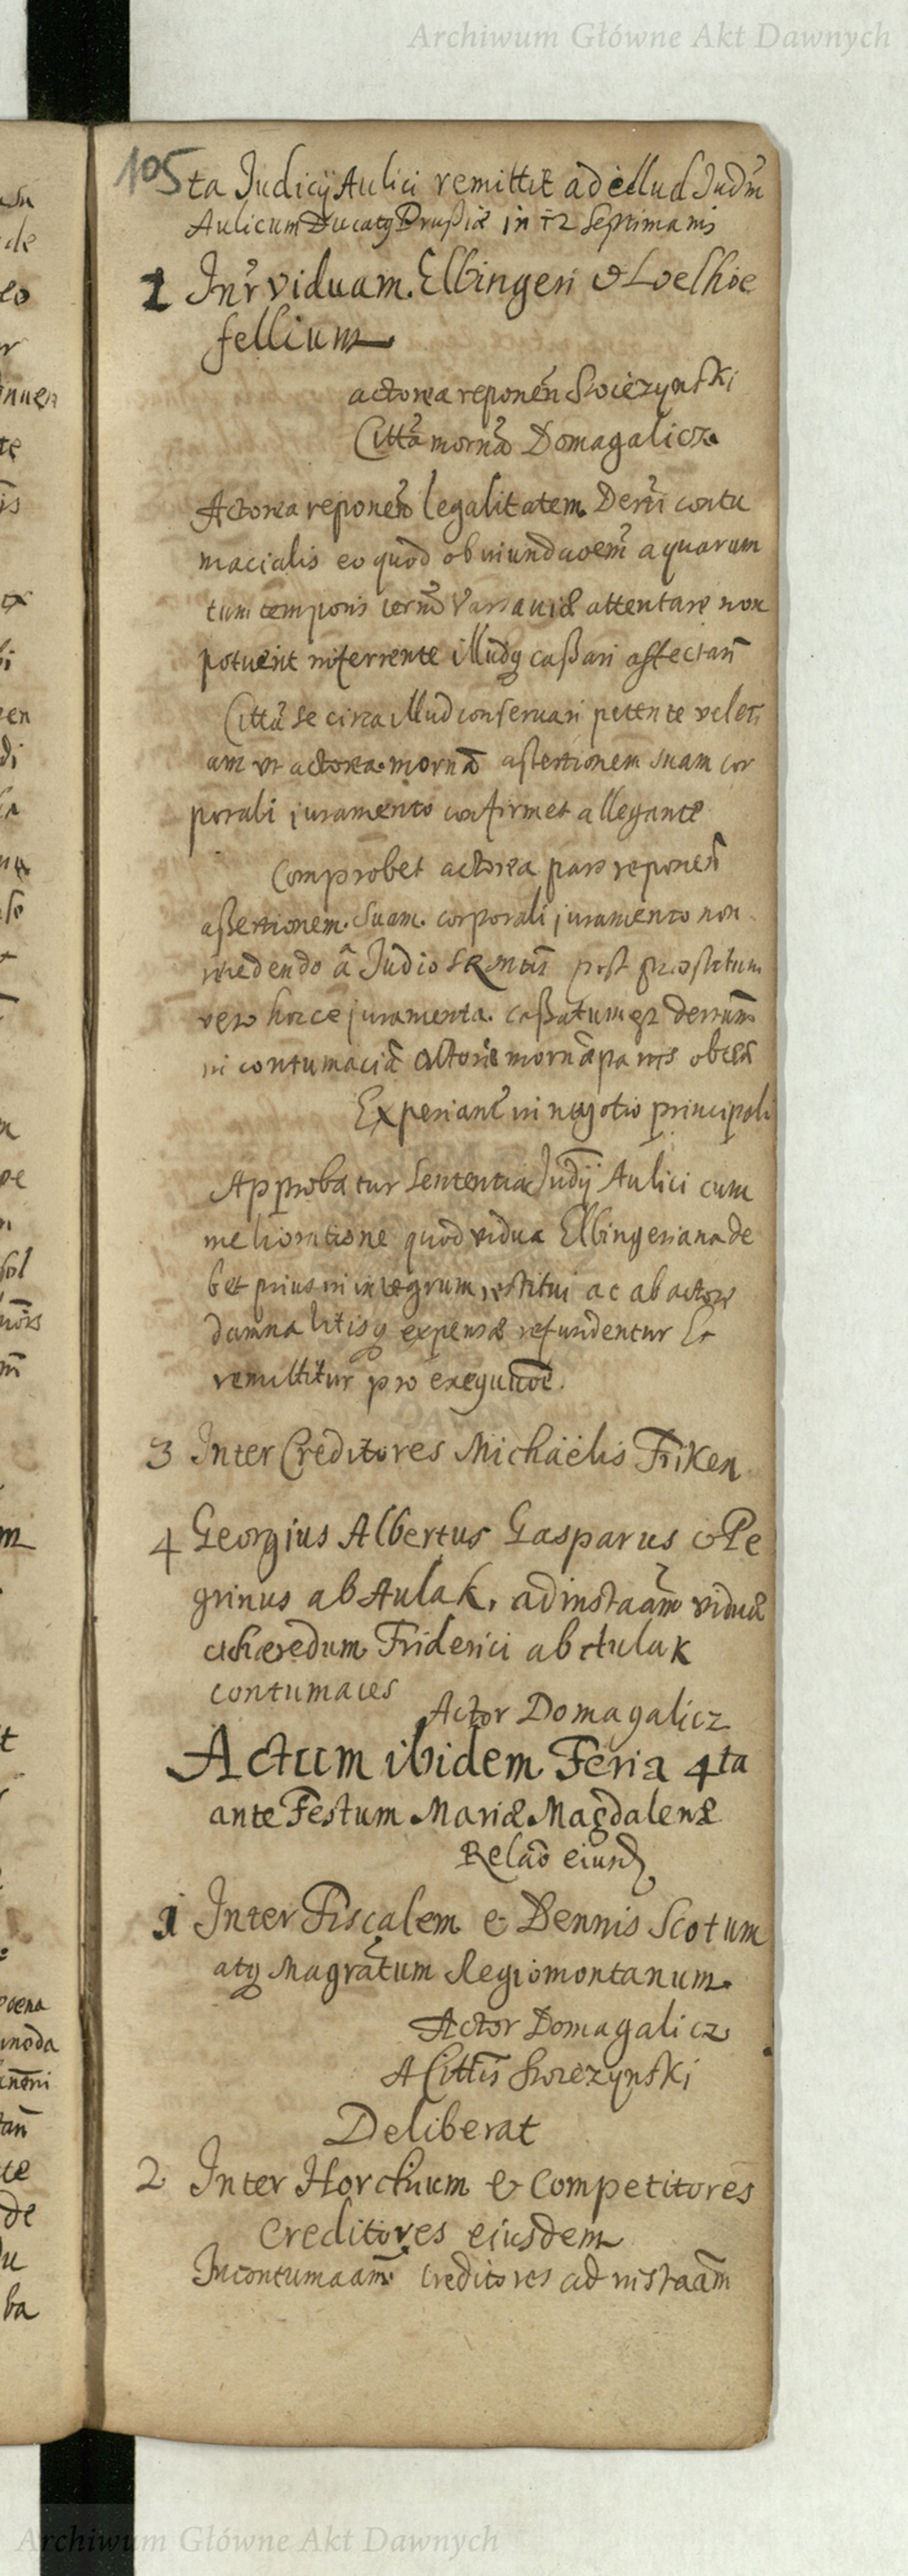 Archiwum Główne Akt Dawnych
105
ta Judicij Aulici remittit ad illud Judm
Aulicum Ducatq Prußiæ in 12 Septimanis
2 Intr viduam Elbingeri & Loelhoe
fellium
actorea reponen Swiezynski
Citta morna Domagalicz
Actorea reponen legalitatem Derti contu
macialis eo quod ob inundaoem aquarum
tum temporis iernu Varsaviæ attentare non
potuerit inferrente illudq caßari affectan
Citta se circa illud conservari petente veleti
am ut actorea morna assertionem suam cor
porali juramento confirmet allegante
Comprobet actorea pars reponen
aßertionem suam corporali juramento non
recedendo a Judio post præstitum
vero hocce juramenta caßatum est derum
in contumacia actoreæ morna partis obten
Experiant in negotio principali
Approbatur Sententia Judij Aulici cum
melioratione quod vidua Elbingeriana de
bet prius in integrum restitui ac ab actore
damna litisq expensæ refundentur Et
remittitur pro exequutioe.
3 Inter Creditores Michaelis Friken
4 Georgius Albertus Gasparus & Pe
grinus ab Aulak, ad instaam viduæ
et hæredum Friderici ab Aulak
contumaces
Actor Domagalicz
Actum ibidem Feria 4ta
ante Festum Mariæ Magdalenæ
Relao eiusd
1 Inter Fiscalem & Dennis Scotum
atq Magratum Regiomontanum
Actor Domagalicz
A Cittis Swiezynski
Deliberat
2 Inter Horchium & Competitores
Creditores eiusdem
In contumaam Creditores ad instaam
Archiwum Główne Akt Dawnych